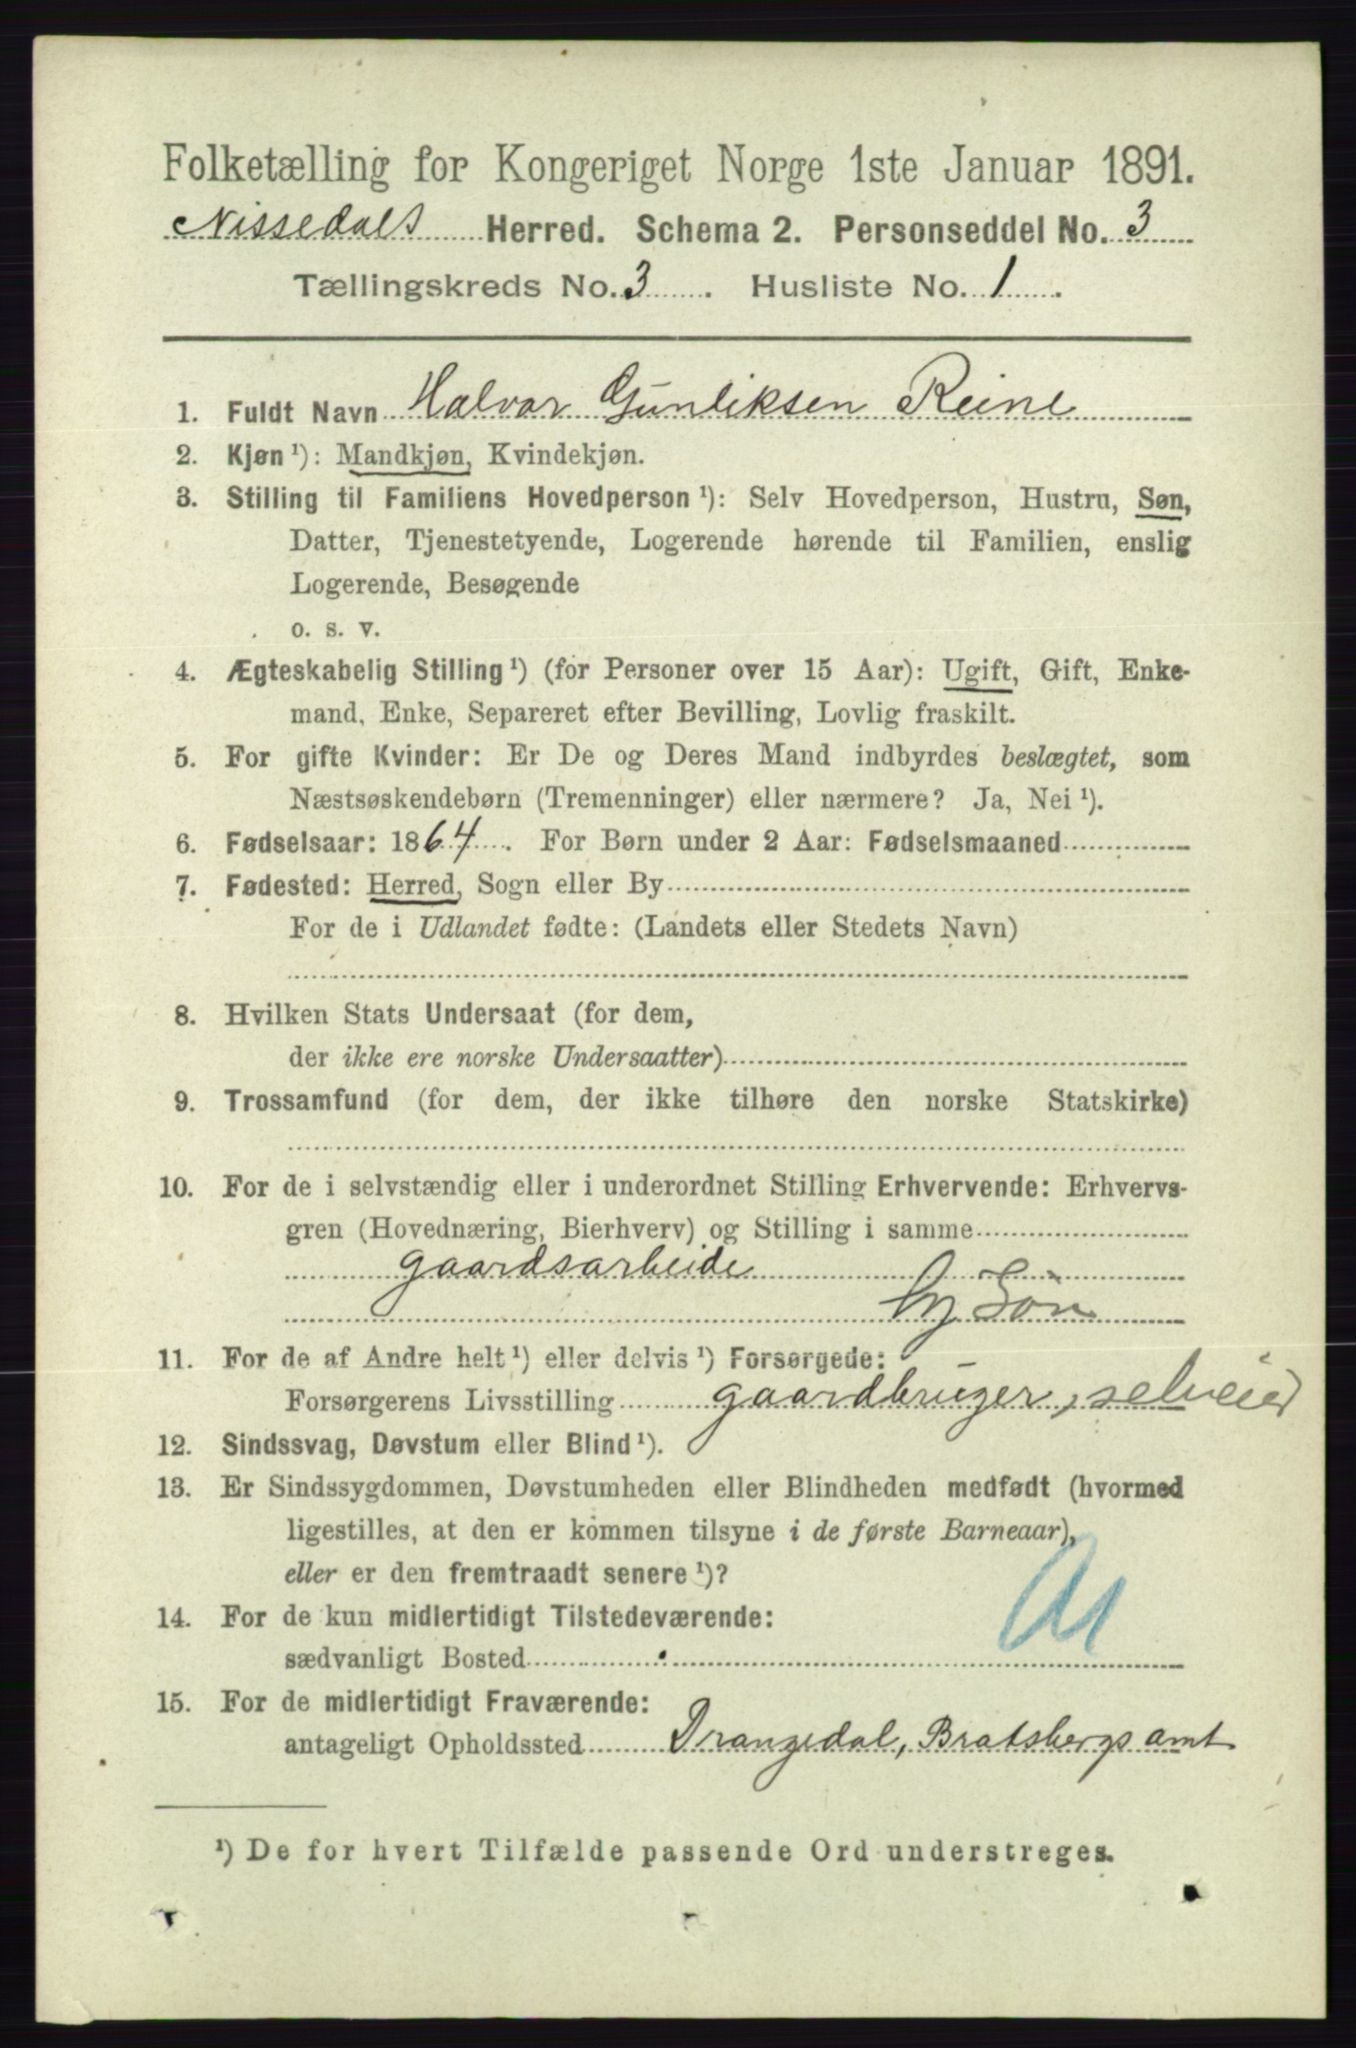 Folketælling for Kongeriget Norge 1ste Januar 1891.
Nissedals Herred. Schema 2. Personseddel No. 3
Tællingskreds No. 3. Husliste No. 1.
1. Fuldt Navn Halvor Gunliksen Reine
2. Kjøn ¹): Mandkjøn, Kvindekjøn.
3. Stilling til Familiens Hovedperson ¹): Selv Hovedperson, Hustru, Søn,
Datter, Tjenestetyende, Logerende hørende til Familien, enslig
Logerende, Besøgende
o. s. v.
4. Ægteskabelig Stilling ¹) (for Personer over 15 Aar): Ugift, Gift, Enke-
mand, Enke, Separeret efter Bevilling, Lovlig fraskilt.
5. For gifte Kvinder: Er De og Deres Mand indbyrdes beslægtet, som
Næstsøskendebørn (Tremenninger) eller nærmere? Ja, Nei ¹).
6. Fødselsaar: 1864. For Børn under 2 Aar: Fødselsmaaned
7. Fødested: Herred, Sogn eller By
For de i Udlandet fødte: (Landets eller Stedets Navn)
8. Hvilken Stats Undersaat (for dem,
der ikke ere norske Undersaatter)
9. Trossamfund (for dem, der ikke tilhøre den norske Statskirke)
10. For de i selvstændig eller i underordnet Stilling Erhvervende: Erhvervs-
gren (Hovednæring, Bierhverv) og Stilling i samme
gaardsarbeide
Søn
11. For de af Andre helt ¹) eller delvis ¹) Forsørgede:
Forsørgerens Livsstilling gaardbruger, selveier
12. Sindssvag, Døvstum eller Blind ¹).
13. Er Sindssygdommen, Døvstumheden eller Blindheden medfødt (hvormed
ligestilles, at den er kommen tilsyne i de første Barneaar),
eller er den fremtraadt senere ¹)?
14. For de kun midlertidigt Tilstedeværende:
sædvanligt Bosted
15. For de midlertidigt Fraværende:
antageligt Opholdssted Drangedal, Bratsbergs amt
¹) De for hvert Tilfælde passende Ord understreges.